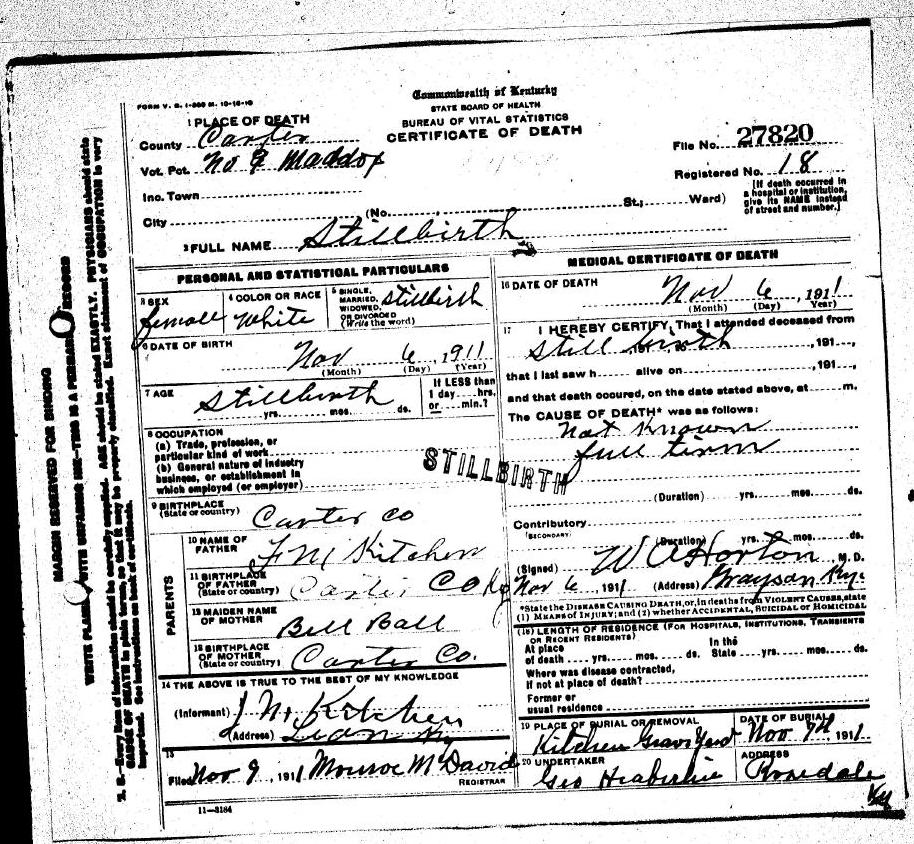 Commonwealth of Kentucky
STATE BOARD OF HEALTH
BUREAU OF VITAL STATISTICS
CERTIFICATE OF DEATH
FORM V. S. 1-
1 PLACE OF DEATH
County Carter
Vot. Pct. No 9 Maddox
Inc. Town
City (No. , St., Ward)
File No. 27820
Registered No. 18
(If death occurred in
a hospital or institution,
give its NAME instead
of street and number.)
2 FULL NAME Stillbirth
PERSONAL AND STATISTICAL PARTICULARS
3 SEX female
4 COLOR OR RACE White
5 SINGLE, MARRIED, WIDOWED, OR DIVORCED (Write the word) stillbirth
6 DATE OF BIRTH Nov 6, 1911
(Month) (Day) (Year)
7 AGE Stillbirth
yrs. mos. ds.
If LESS than
1 day hrs.
or min.?
8 OCCUPATION
(a) Trade, profession, or
particular kind of work
(b) General nature of industry
business, or establishment in
which employed (or employer)
STILLBIRTH
9 BIRTHPLACE
(State or country) Carter Co
PARENTS
10 NAME OF FATHER F M Kitchen
11 BIRTHPLACE OF FATHER
(State or country) Carter Co Ky
12 MAIDEN NAME OF MOTHER Bell Ball
13 BIRTHPLACE OF MOTHER
(State or country) Carter Co.
14 THE ABOVE IS TRUE TO THE BEST OF MY KNOWLEDGE
(Informant) Kitchen
(Address) Leon Ky
15
Filed Nov 9, 1911 Monroe McDavid
REGISTRAR
11-3184
MEDICAL CERTIFICATE OF DEATH
16 DATE OF DEATH Nov 6, 1911
(Month) (Day) (Year)
17 I HEREBY CERTIFY, That I attended deceased from
Still birth , 191 ,
that I last saw h alive on , 191 ,
and that death occured, on the date stated above, at m.
The CAUSE OF DEATH* was as follows:
Not Known
full term
(Duration) yrs. mos. ds.
Contributory
(SECONDARY)
(Duration) yrs. mos. ds.
(Signed) W A Horton M. D.
Nov 6, 1911 (Address) Grayson Ky.
*State the DISEASE CAUSING DEATH, or, in deaths from VIOLENT CAUSES, state
(1) MEANS OF INJURY; and (2) whether ACCIDENTAL, SUICIDAL OR HOMICIDAL
(18) LENGTH OF RESIDENCE (FOR HOSPITALS, INSTITUTIONS, TRANSIENTS
OR RECENT RESIDENTS)
At place of death yrs. mos. ds. In the State yrs. mos. ds.
Where was disease contracted,
if not at place of death?
Former or
usual residence
19 PLACE OF BURIAL OR REMOVAL Kitchen Grave Yard
DATE OF BURIAL Nov 7th, 1911
20 UNDERTAKER Geo
ADDRESS Rosedale
Ky
MARGIN RESERVED FOR BINDING
WRITE PLAINLY WITH UNFADING INK—THIS IS A PERMANENT RECORD
N. B.—Every item of information should be carefully supplied. AGE should be stated EXACTLY. PHYSICIANS should state
CAUSE OF DEATH in plain terms, so that it may be properly classified. Exact statement of OCCUPATION is very
important. See instructions on back of certificate.